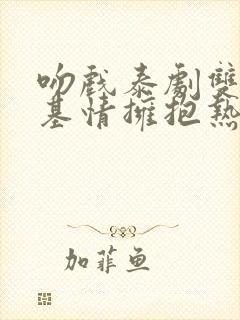 吻戲泰劇雙
基情擁抱熱
加菲鱼